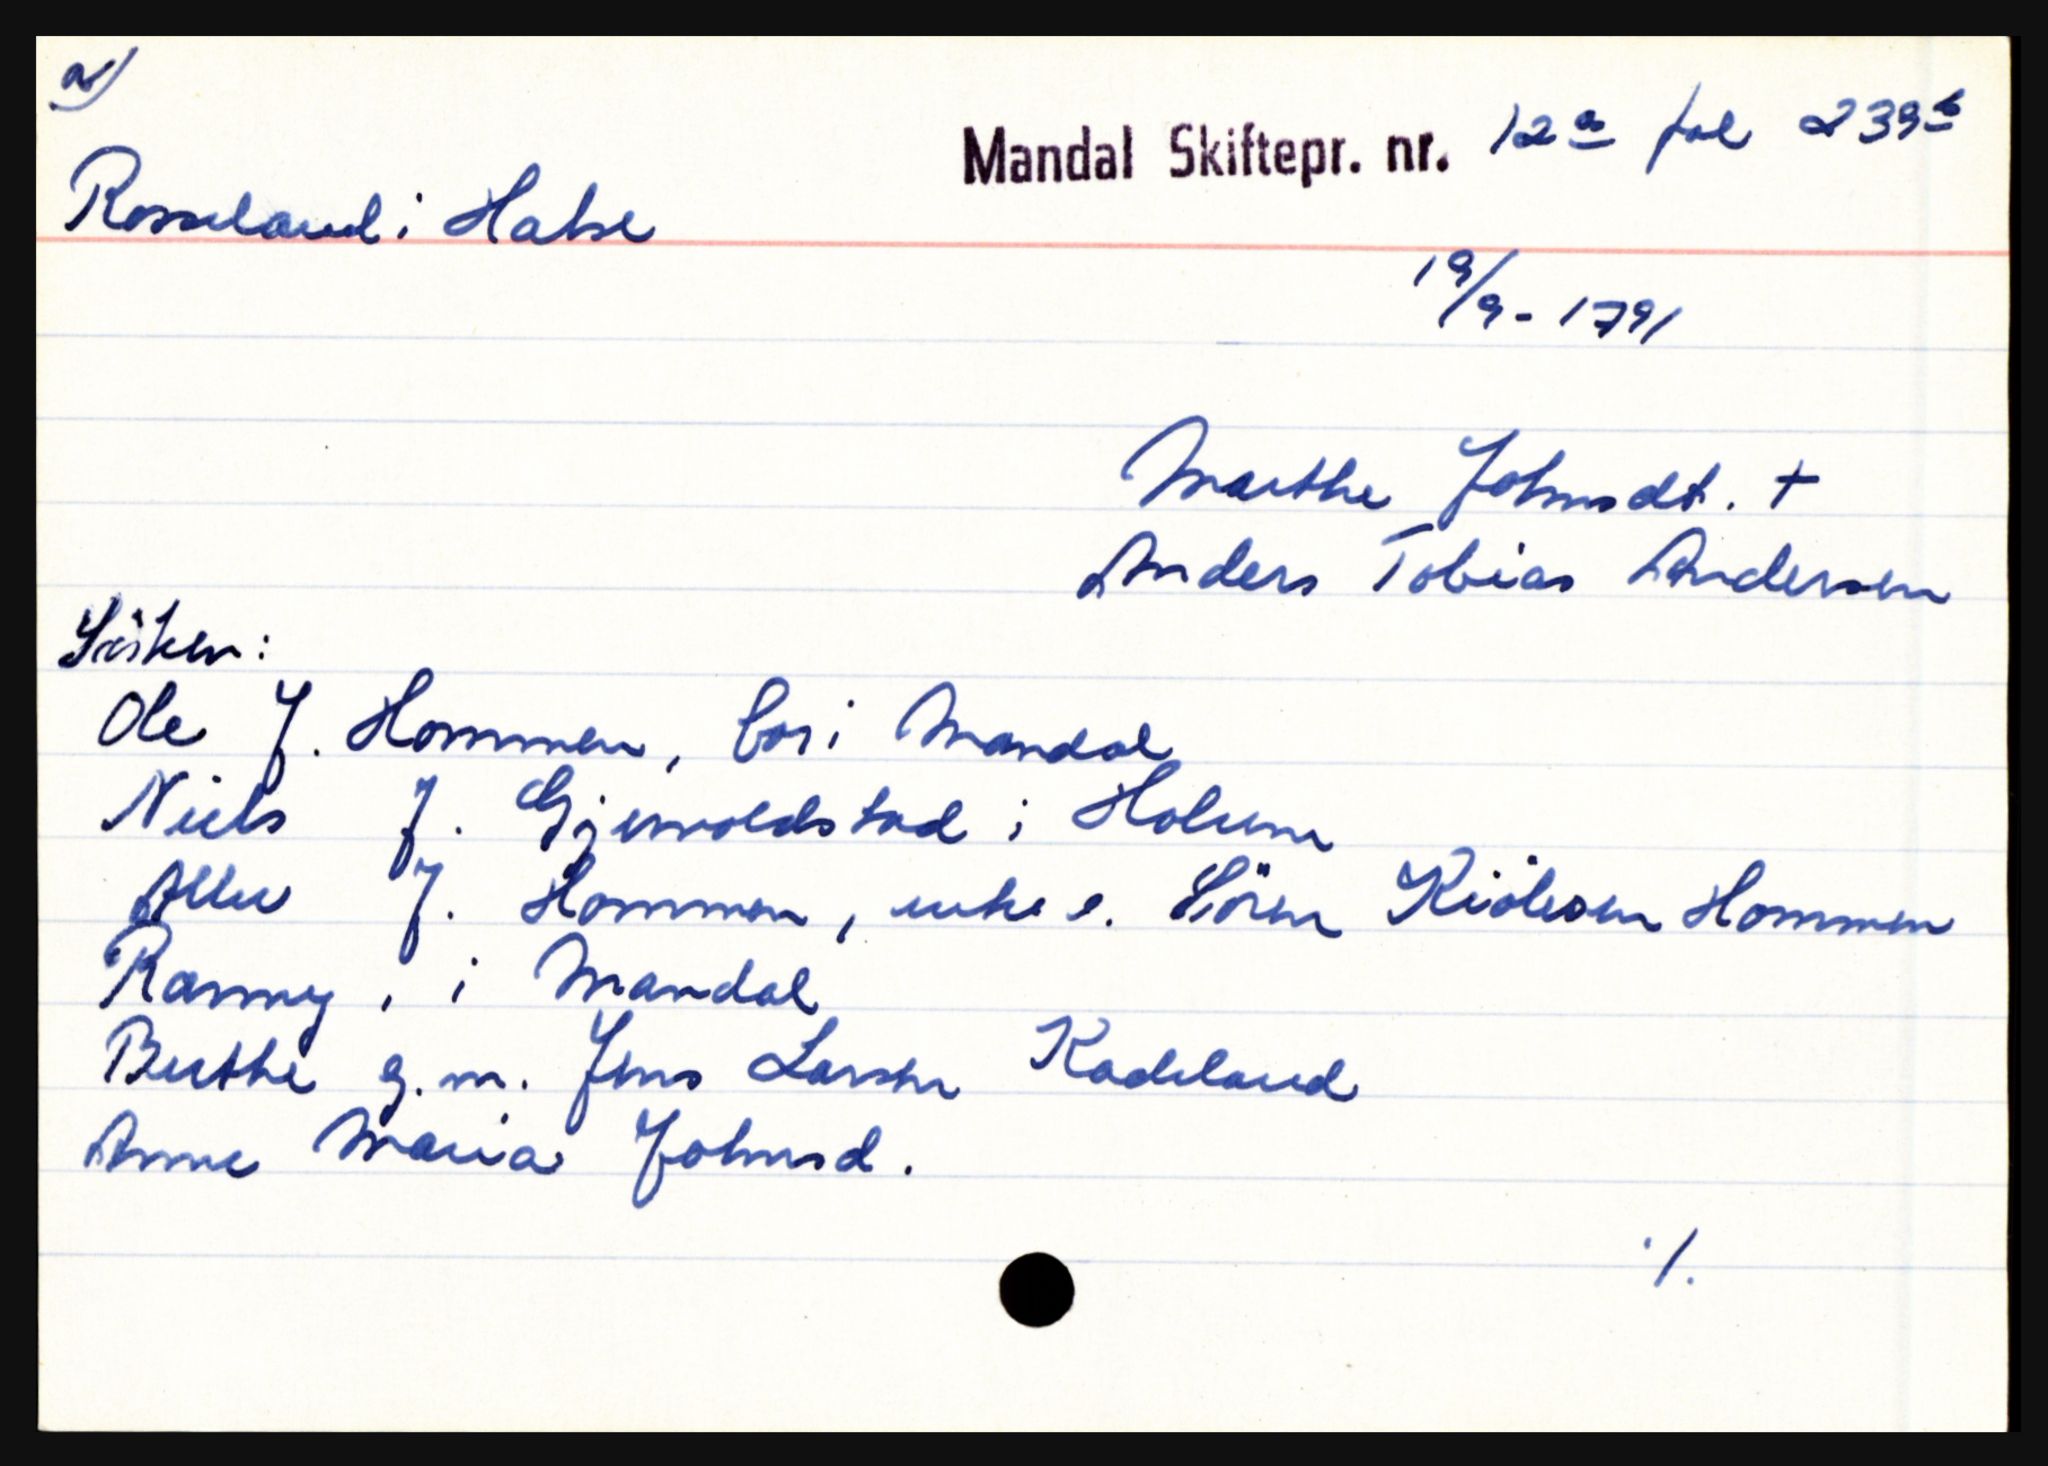 a)
Mandal Skiftepr. nr. 12a fol 239b
Rosseland i Halse
19/9-1791
Marthe Johnsdt. +
Anders Tobias Andersen
Søsken:
Ole J. Hommen, bor i Mandal
Niels J. Gjervoldstad i Holum
Aller J. Hommen, enke e. Sören Kiölesen Hommen
Ranny, i Mandal
Berthe g.m. Jens Larsen Kadeland
Anne Maria Johnsd.
./.